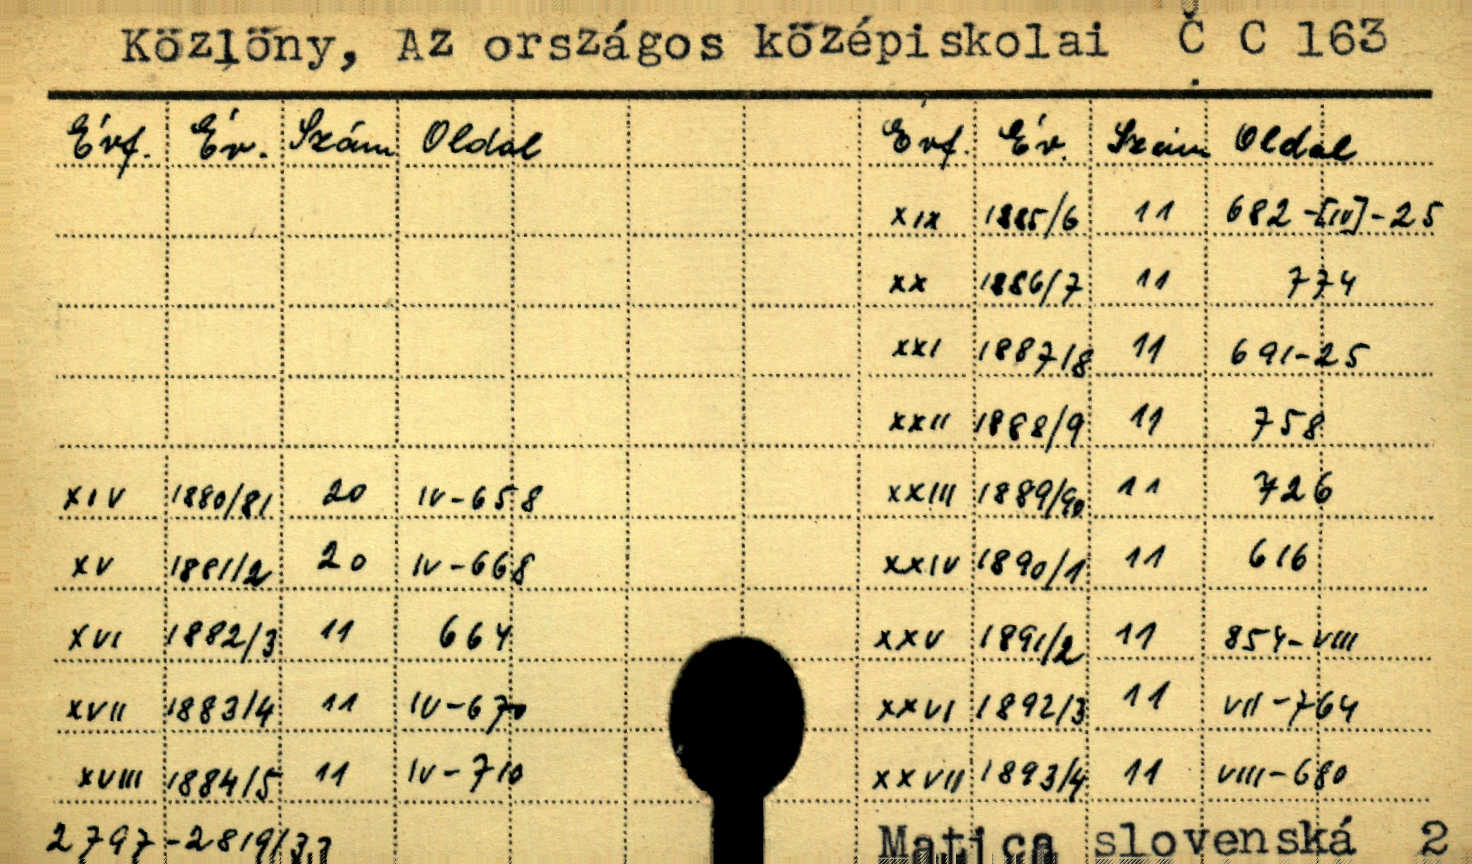 Közlöny, Az országos középiskolai Č C 163
Évf. Év. Szám Oldal Évf. Év. Szám Oldal
XIX 1885/6 11 682-[IV]-25
XX 1886/7 11 774
XXI 1887/8 11 691-25
XXII 1888/9 11 758
XIV 1880/81 20 IV-658 XXIII 1889/90 11 726
XV 1881/2 20 IV-668 XXIV 1890/1 11 616
XVI 1882/3 11 664 XXV 1891/2 11 854-VIII
XVII 1883/4 11 IV-670 XXVI 1892/3 11 VII-764
XVIII 1884/5 11 IV-710 XXVII 1893/4 11 VIII-680
2797-2819/33 Matica slovenská 2